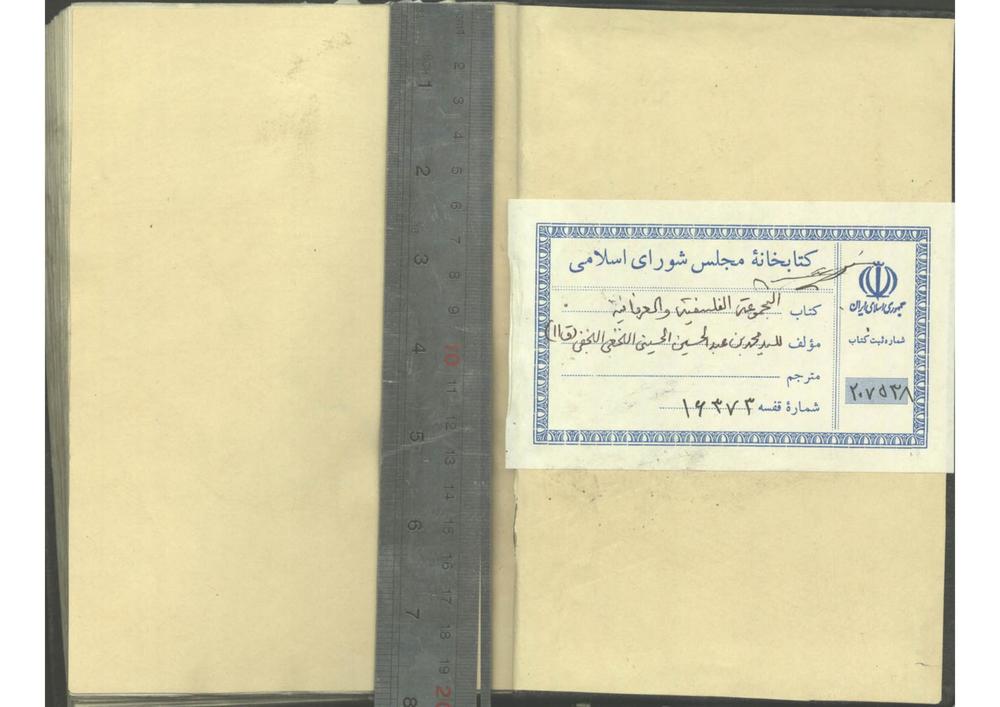 کتابخانهٔ مجلس شورای اسلامی
کتاب المجموعة الفلسفية والعرفانية
مؤلف للسید محمد بن عبد الحسین الحسيني النجفي (ق۱۱)
مترجم
شمارهٔ قفسه ۱۶۳۷۳
جمهوری اسلامی ایران
شماره ثبت کتاب
۲۰۷۵۳۸
1 2 3 4 5 6 7 8 9 10 11 12 13 14 15 16 17 18 19 20
1 2 3 4 5 6 7 8